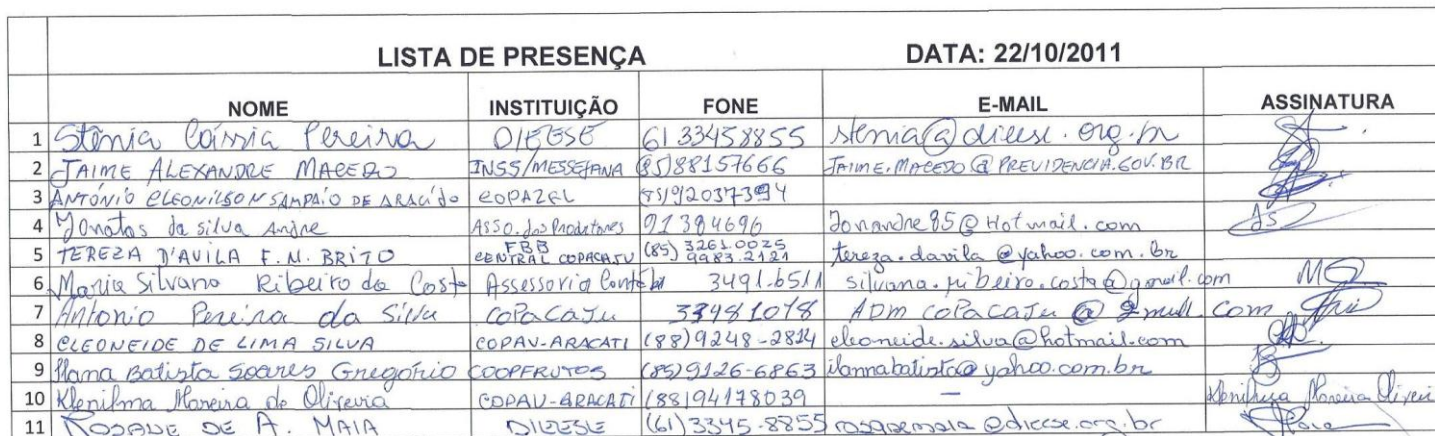 LISTA DE PRESENÇA DATA: 22/10/2011
NOME INSTITUIÇÃO FONE E-MAIL ASSINATURA
1 Stênia Cássia Pereira DIEESE 61 33458855 stenia@dieese.org.br
2 JAIME ALEXANDRE MACEDO INSS/MESSEJANA (85)88157666 JAIME.MACEDO@PREVIDENCIA.GOV.BR
3 ANTÓNIO CLEONILSON SAMPAIO DE COPAZEL
4 Jonatas da silva Andre Asso. dos Produtores 91384696 Jonandre85@Hotmail.com
5 TEREZA D'AVILA F.M. BRITO FBB CENTRAL COPACAJU (85) 3261.0025 9983.2121 tereza.davila@yahoo.com.br
6 Maria Silvano Ribeiro da Costa Assessoria Contábil 3491.6511 silvana.ribeiro.costa@gmail.com
7 Antonio Pereira da Silva COPACAJU 33481078 ADM COPACAJU @ gmail.com
8 CLEONEIDE DE LIMA SILVA COPAV-ARACATI (88)9248-2814 cleoneide.silva@hotmail.com
9 Ilana Batista Soares Gregório COOPFRUTOS (85)9126-6863 ilannabatista@yahoo.com.br
10 Klenilma Moreira de Oliveira COPAV-ARACATI (88)94178039 —
11 ROSANE DE A. MAIA DIEESE (61)3345-8855 rosanemaia@dieese.org.br